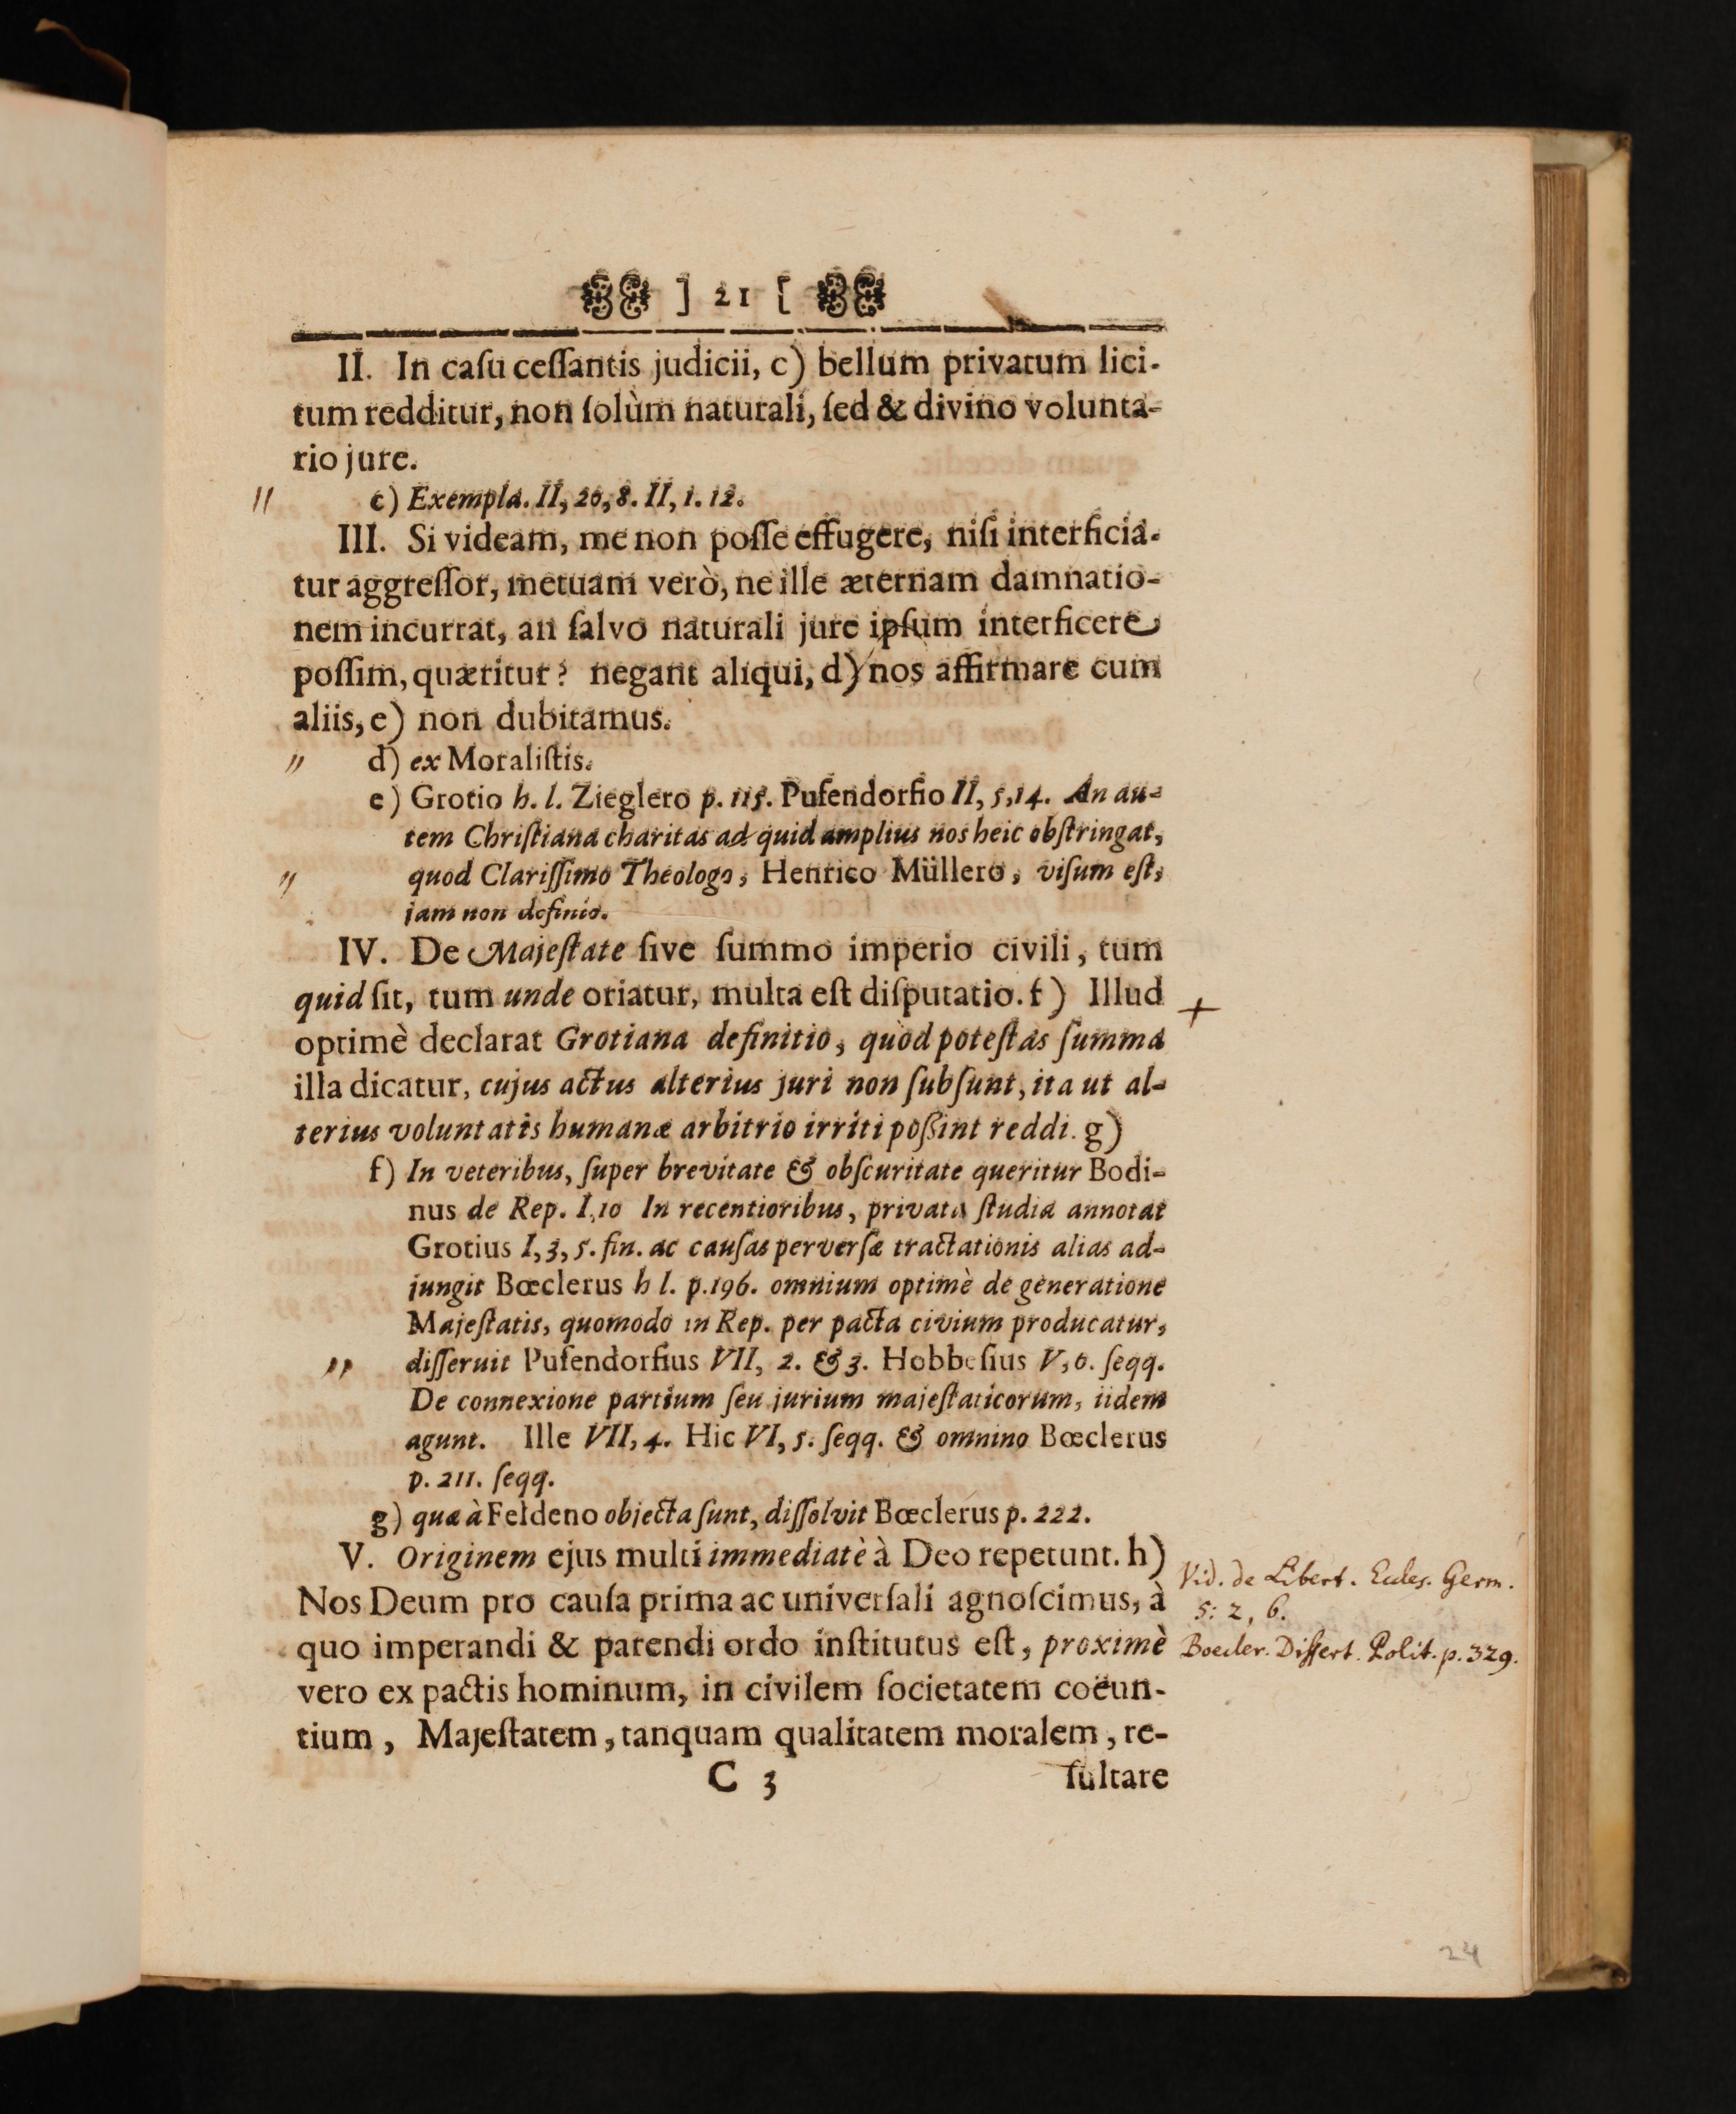 ] 21 [
II. In caſu ceſſantis judicii, c) bellum privatum lici-
tum redditur, non ſolùm naturali, ſed & divino volunta-
rio jure.
c) Exempla. II, 20, 8. II, 1. 12.
III. Si videam, me non poſſe effugere, niſi interficia-
tur aggreſſor, metuam verò, ne ille æternam damnatio-
nem incurrat, an ſalvo naturali jure ipſum interficere
poſſim, quæritur? negant aliqui, d) nos affirmare cum
aliis, e) non dubitamus.
d) ex Moraliſtis.
e) Grotio h. l. Zieglero p. 115. Pufendorfio II, 5, 14. An au-
tem Chriſtiana charitas ad quid amplius nos heic obſtringat,
quod Clariſſimo Theologo, Henrico Müllero, viſum eſt,
jam non definio.
IV. De Majeſtate ſive ſummo imperio civili, tum
quid ſit, tum unde oriatur, multa eſt diſputatio. f) Illud +
optimè declarat Grotiana definitio, quòd poteſtas ſumma
illa dicatur, cujus actus alterius juri non ſubſunt, ita ut al-
terius voluntatis humanæ arbitrio irriti poſſint reddi. g)
f) In veteribus, ſuper brevitate & obſcuritate queritur Bodi-
nus de Rep. I, 10 In recentioribus, privata ſtudia annotat
Grotius I, 3, 5. fin. ac cauſas perverſæ tractationis alias ad-
jungit Bœclerus h l. p. 196. omnium optimè de generatione
Majeſtatis, quomodo in Rep. per pacta civium producatur,
" diſſeruit Pufendorfius VII, 2. & 3. Hobbeſius V, 6. ſeqq.
De connexione partium ſeu jurium majeſtaticorum, iidem
agunt. Ille VII, 4. Hic VI, 5. ſeqq. & omnino Bœclerus
p. 211. ſeqq.
g) quæ à Feldeno objecta ſunt, diſſolvit Bœclerus p. 222.
V. Originem ejus multi immediatè à Deo repetunt. h)
Nos Deum pro cauſa prima ac univerſali agnoſcimus, à
quo imperandi & parendi ordo inſtitutus eſt, proximè
vero ex pactis hominum, in civilem ſocietatem coëun-
tium, Majeſtatem, tanquam qualitatem moralem, re-
C 3 ſultare
Vid. de Libert. Eccles. Germ.
5: 2, 6.
Boecler. Dissert. Polit. p. 329.
24